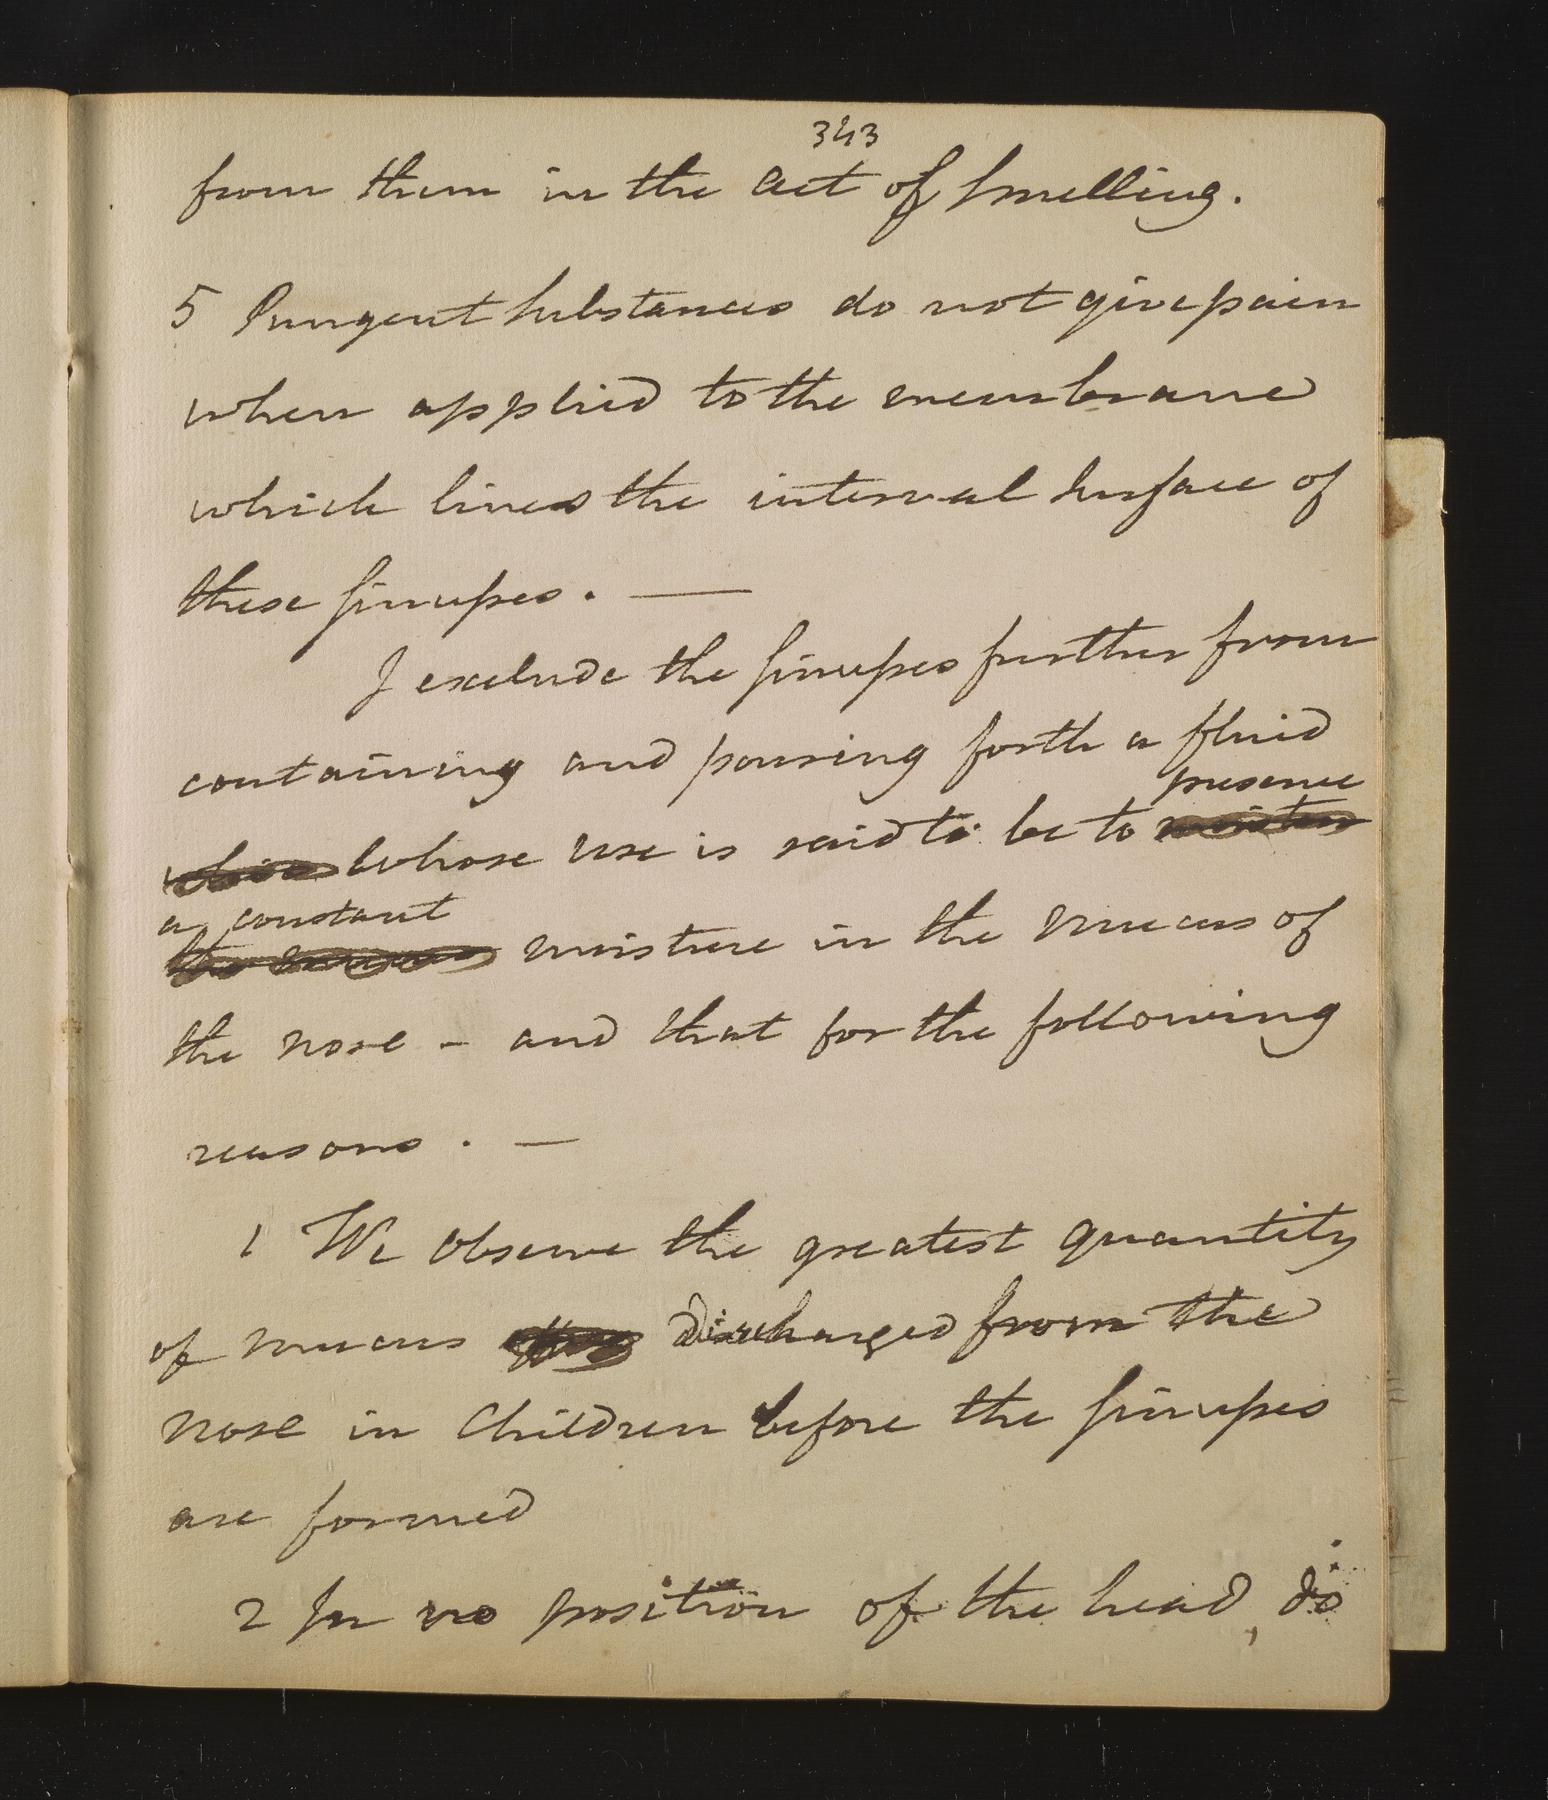 343
from them in the act of smelling.
5 Pungent substances do not give pain
when applied to the membrane
which lines the internal surface of
these sinusses. —
I exclude the sinusses further from
containing and pouring forth a fluid
presence
whose use is said to be to moisten
a constant
the mucus moisture in the mucus of
the nose - and that for the following
reasons. —
1 We observe the greatest quantity
of mucus discharged from the
nose in Children before the sinusses
are formed
2 In no position of the head, do